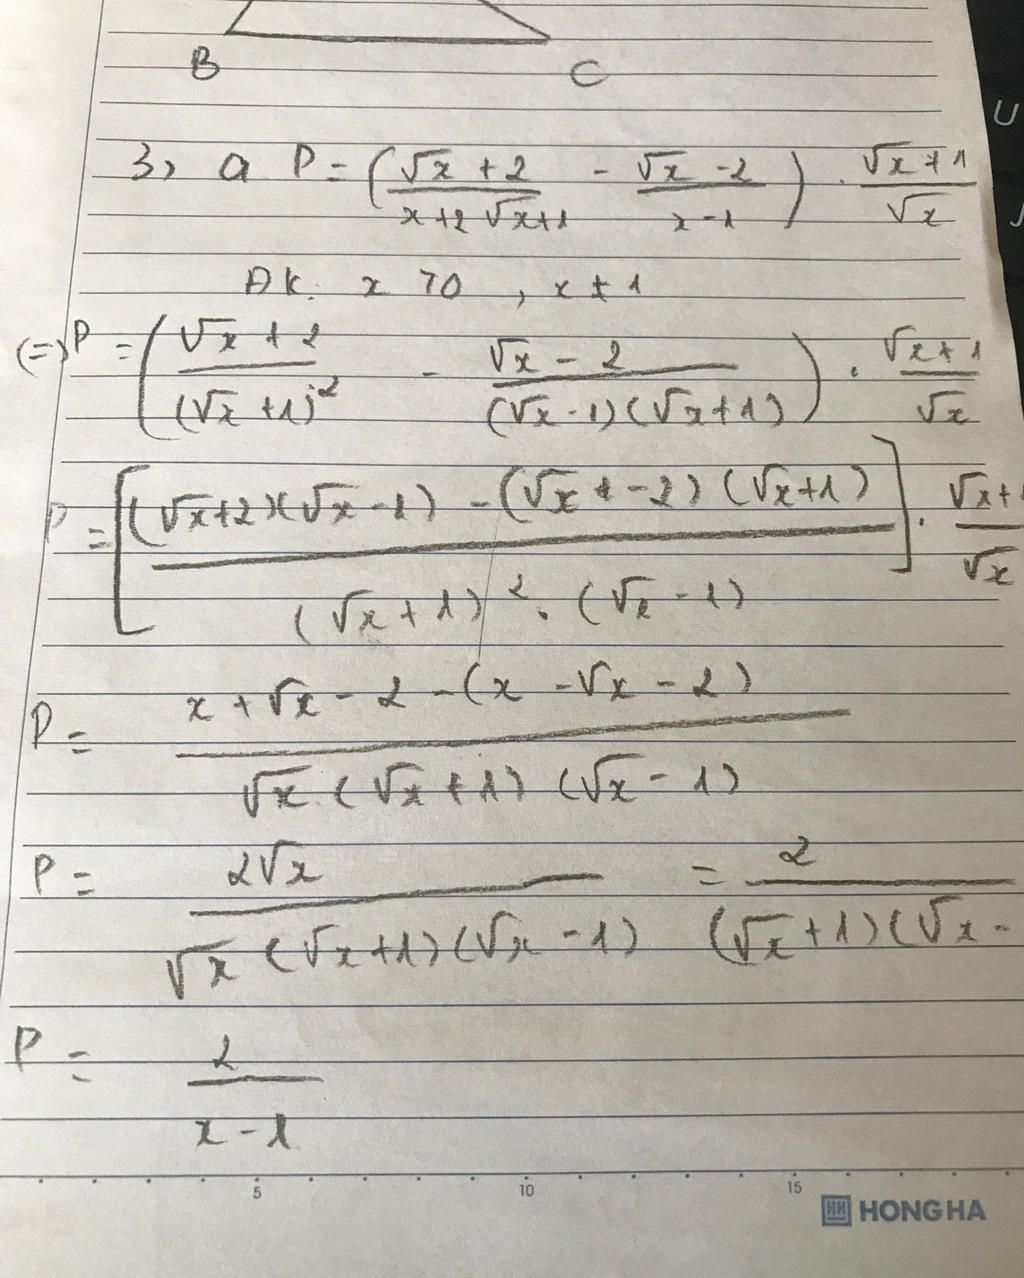 B C
3, a P = (√x + 2 / x+2√x+1 - √x - 2 / x-1) . √x + 1 / √x
ĐK: x > 0 , x ≠ 1
(=) P = (√x + 2 / (√x + 1)² - √x - 2 / (√x - 1)(√x + 1)) . √x + 1 / √x
P = [(√x+2)(√x-1) - (√x + -2)(√x+1) / (√x + 1)² . (√x - 1)] . √x+1 / √x
P = x + √x - 2 - (x - √x - 2) / √x . (√x + 1) (√x - 1)
P = 2√x / √x (√x+1)(√x - 1) = 2 / (√x + 1)(√x -
P = 2 / x - 1
5 10 15
HH HONG HA